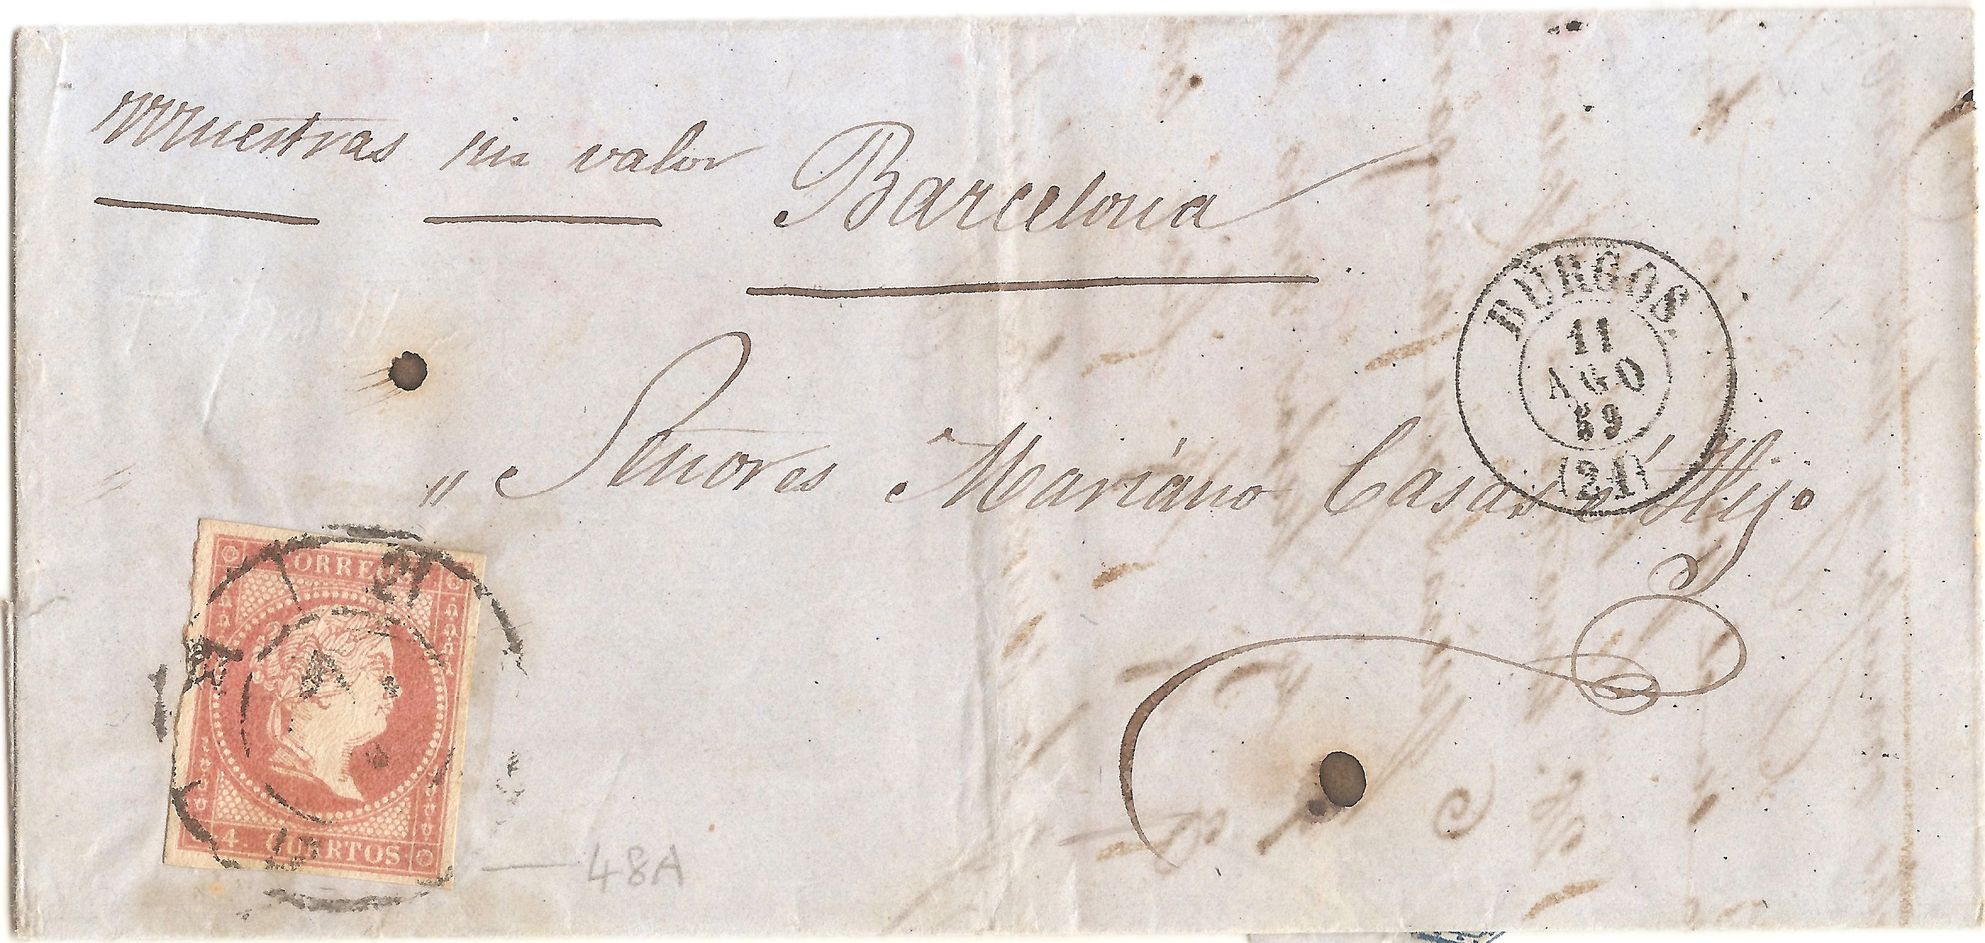 Muestras sin valor
Barcelona
BURGOS.
11
AGO
59
(21)
" Señores Mariáno Casas é Hijo
CORREOS
4. CUARTOS
48A